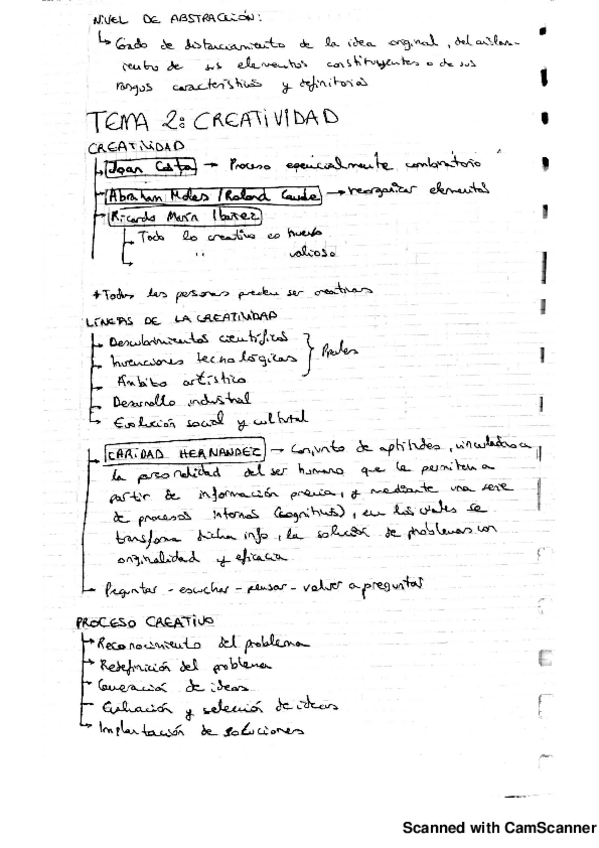 NIVEL DE ABSTRACCIÓN:
↳ Grado de distanciamiento de la idea original, del aislamiento
de sus elementos constituyentes o de sus
rasgos característicos y definitorios
TEMA 2: CREATIVIDAD
CREATIVIDAD
Joan Costa → Proceso esencialmente combinatorio
Abraham Moles / Roland Caude → reorganizar elementos
Ricardo Marín Ibáñez
Todo lo creativo es nuevo
" valioso
* Todas las personas pueden ser creativas
LÍNEAS DE LA CREATIVIDAD
Descubrimientos científicos
Invenciones tecnológicas
Ámbito artístico
Desarrollo industrial
Evolución social y cultural
CARIDAD HERNÁNDEZ → Conjunto de aptitudes, vinculadas a
la personalidad del ser humano que le permiten a
partir de información previa, y mediante una serie
de procesos internos (cognitivos), en los cuales se
transforma dicha info, la solución de problemas con
originalidad y eficacia
Preguntar - escuchar - pensar - volver a preguntar
PROCESO CREATIVO
Reconocimiento del problema
Redefinición del problema
Generación de ideas
Evaluación y selección de ideas
Implantación de soluciones
Scanned with CamScanner